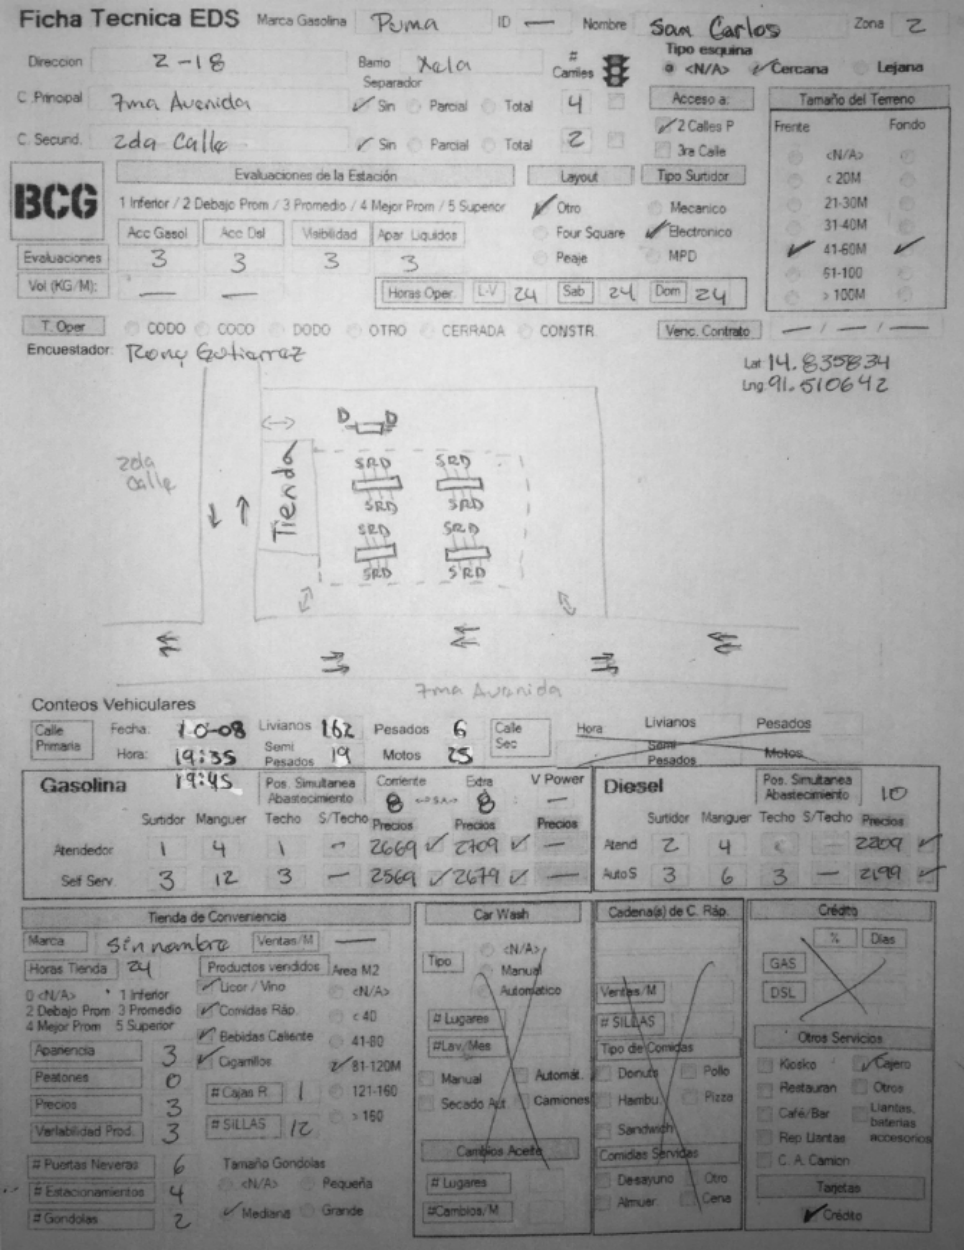 Ficha Tecnica EDS Marca Gasolina Puma ID — Nombre San Carlos Zona 2
Direccion 2-18 Barrio Xela # Carriles Tipo esquina <N/A> Cercana Lejana
Separador
C. Principal 7ma Avenida Sin Parcial Total 4 Acceso a: Tamaño del Terreno
C. Secund. 2da Calle Sin Parcial Total 2 2 Calles P Frente Fondo
3ra Calle <N/A>
BCG Evaluaciones de la Estación Layout Tipo Surtidor < 20M
1 Inferior / 2 Debajo Prom / 3 Promedio / 4 Mejor Prom / 5 Superior Otro Mecanico 21-30M
Acc Gasol Acc Dsl Visibilidad Apar Liquidos Four Square Electronico 31-40M
Evaluaciones 3 3 3 3 Peaje MPD 41-60M
61-100
Vol (KG/M): — — Horas Oper. L-V 24 Sab 24 Dom 24 > 100M
T. Oper CODO COCO DODO OTRO CERRADA CONSTR. Venc. Contrato — / — / —
Encuestador: Rony Gutierrez
Lat 14.835834
Lng 91.510642
D D
2da Calle
Tienda
SRD SRD
SRD SRD
SRD SRD
SRD SRD
7ma Avenida
Conteos Vehiculares
Calle Primaria Fecha: 10-08 Livianos 162 Pesados 6 Calle Sec Hora Livianos Pesados
Hora: 19:35 Semi Pesados 19 Motos 25 Semi Pesados Motos
19:45
Gasolina Pos. Simultanea Abastecimiento Corriente 8 Extra 8 V Power — Diesel Pos. Simultanea Abastecimiento 10
Surtidor Manguer Techo S/Techo Precios Precios Precios Surtidor Manguer Techo S/Techo Precios
Atendedor 1 4 1 — 2669 2709 — Atend 2 4 — 2209
Self Serv. 3 12 3 — 2569 2679 — Auto S 3 6 3 — 2199
Tienda de Conveniencia Car Wash Cadena(s) de C. Ráp. Crédito
Marca Sin nombre Ventas/M — <N/A> % Dias
Horas Tienda 24 Productos vendidos Area M2 Tipo Manual GAS
0 <N/A> 1 Inferior Licor / Vino <N/A> Automatico Ventas/M DSL
2 Debajo Prom 3 Promedio Comidas Ráp < 40 # Lugares # SILLAS
4 Mejor Prom 5 Superior Bebidas Caliente 41-80 #Lav/Mes Tipo de Comidas Otros Servicios
Apariencia 3 Cigarrillos 81-120M Manual Automát. Donuts Pollo Kiosko Cajero
Peatones 0 # Cajas R. 1 121-160 Secado Aut. Camiones Hambu. Pizza Restauran Otros
Precios 3 > 160 Sandwich Café/Bar Llantas, baterias accesorios
Variabilidad Prod. 3 # SILLAS 12 Cambios Aceite Comidas Servidas Rep Llantas
# Puertas Neveras 6 Tamaño Gondolas # Lugares Desayuno Otro C. A. Camion
# Estacionamientos 4 <N/A> Pequeña #Cambios/M Almuer. Cena Tarjetas
# Gondolas 2 Mediana Grande Crédito